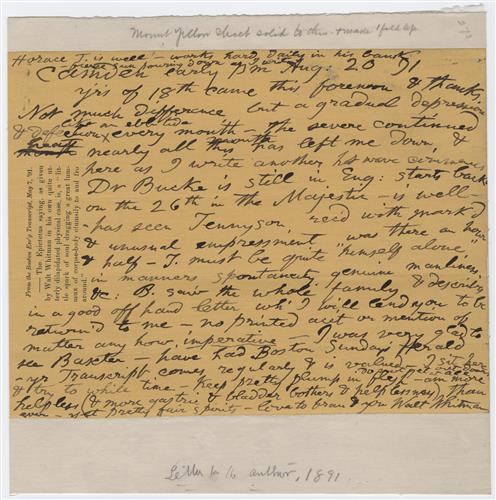 Mount yellow sheet solid to this & make 1 fold up
Horace T. is well - works hard daily in his bank
- breeze & sun pouring down as I write
Camden early P M Aug: 20 '91
Y'rs of 18th came this forenoon & thanks
Not much difference but a gradual depression
like an ebb tide
& defection, every month - the severe continued
heat nearly all this month has left me down, &
here as I write another hot wave commences
Dr Bucke is still in Eng: starts back
on the 26th in the Majestic - is well -
has seen Tennyson, rec'd with mark'd
& unusual empressment, was there an hour
& half - T. must be quite "himself alone"
in manners spontaneity, genuine manliness,
&c: B. saw the whole family & describes
in a good off hand letter wh' I will lend you to be
return'd to me - no printed acc't or mention of
matter any how imperative - I was very glad to
see Baxter - have had Boston Sunday Herald
- y'r Transcript comes regularly & is valued - I sit here
& try to while time - keep pretty plump in flesh - am more
helpless (& more gastric & bladder bothers & helplessness) than
ever - yet pretty fair spirits - love to frau & you Walt Whitman
From the Boston Eve'g Transcript, May 7, '91.
—The Epictetus saying, as given
by Walt Whitman in his own quite ut-
terly dilapidated physical case, is, a "lit-
tle spark of soul dragging a great lum-
mux of corpse-body clumsily to and fro
around."
Letter to author, 1891